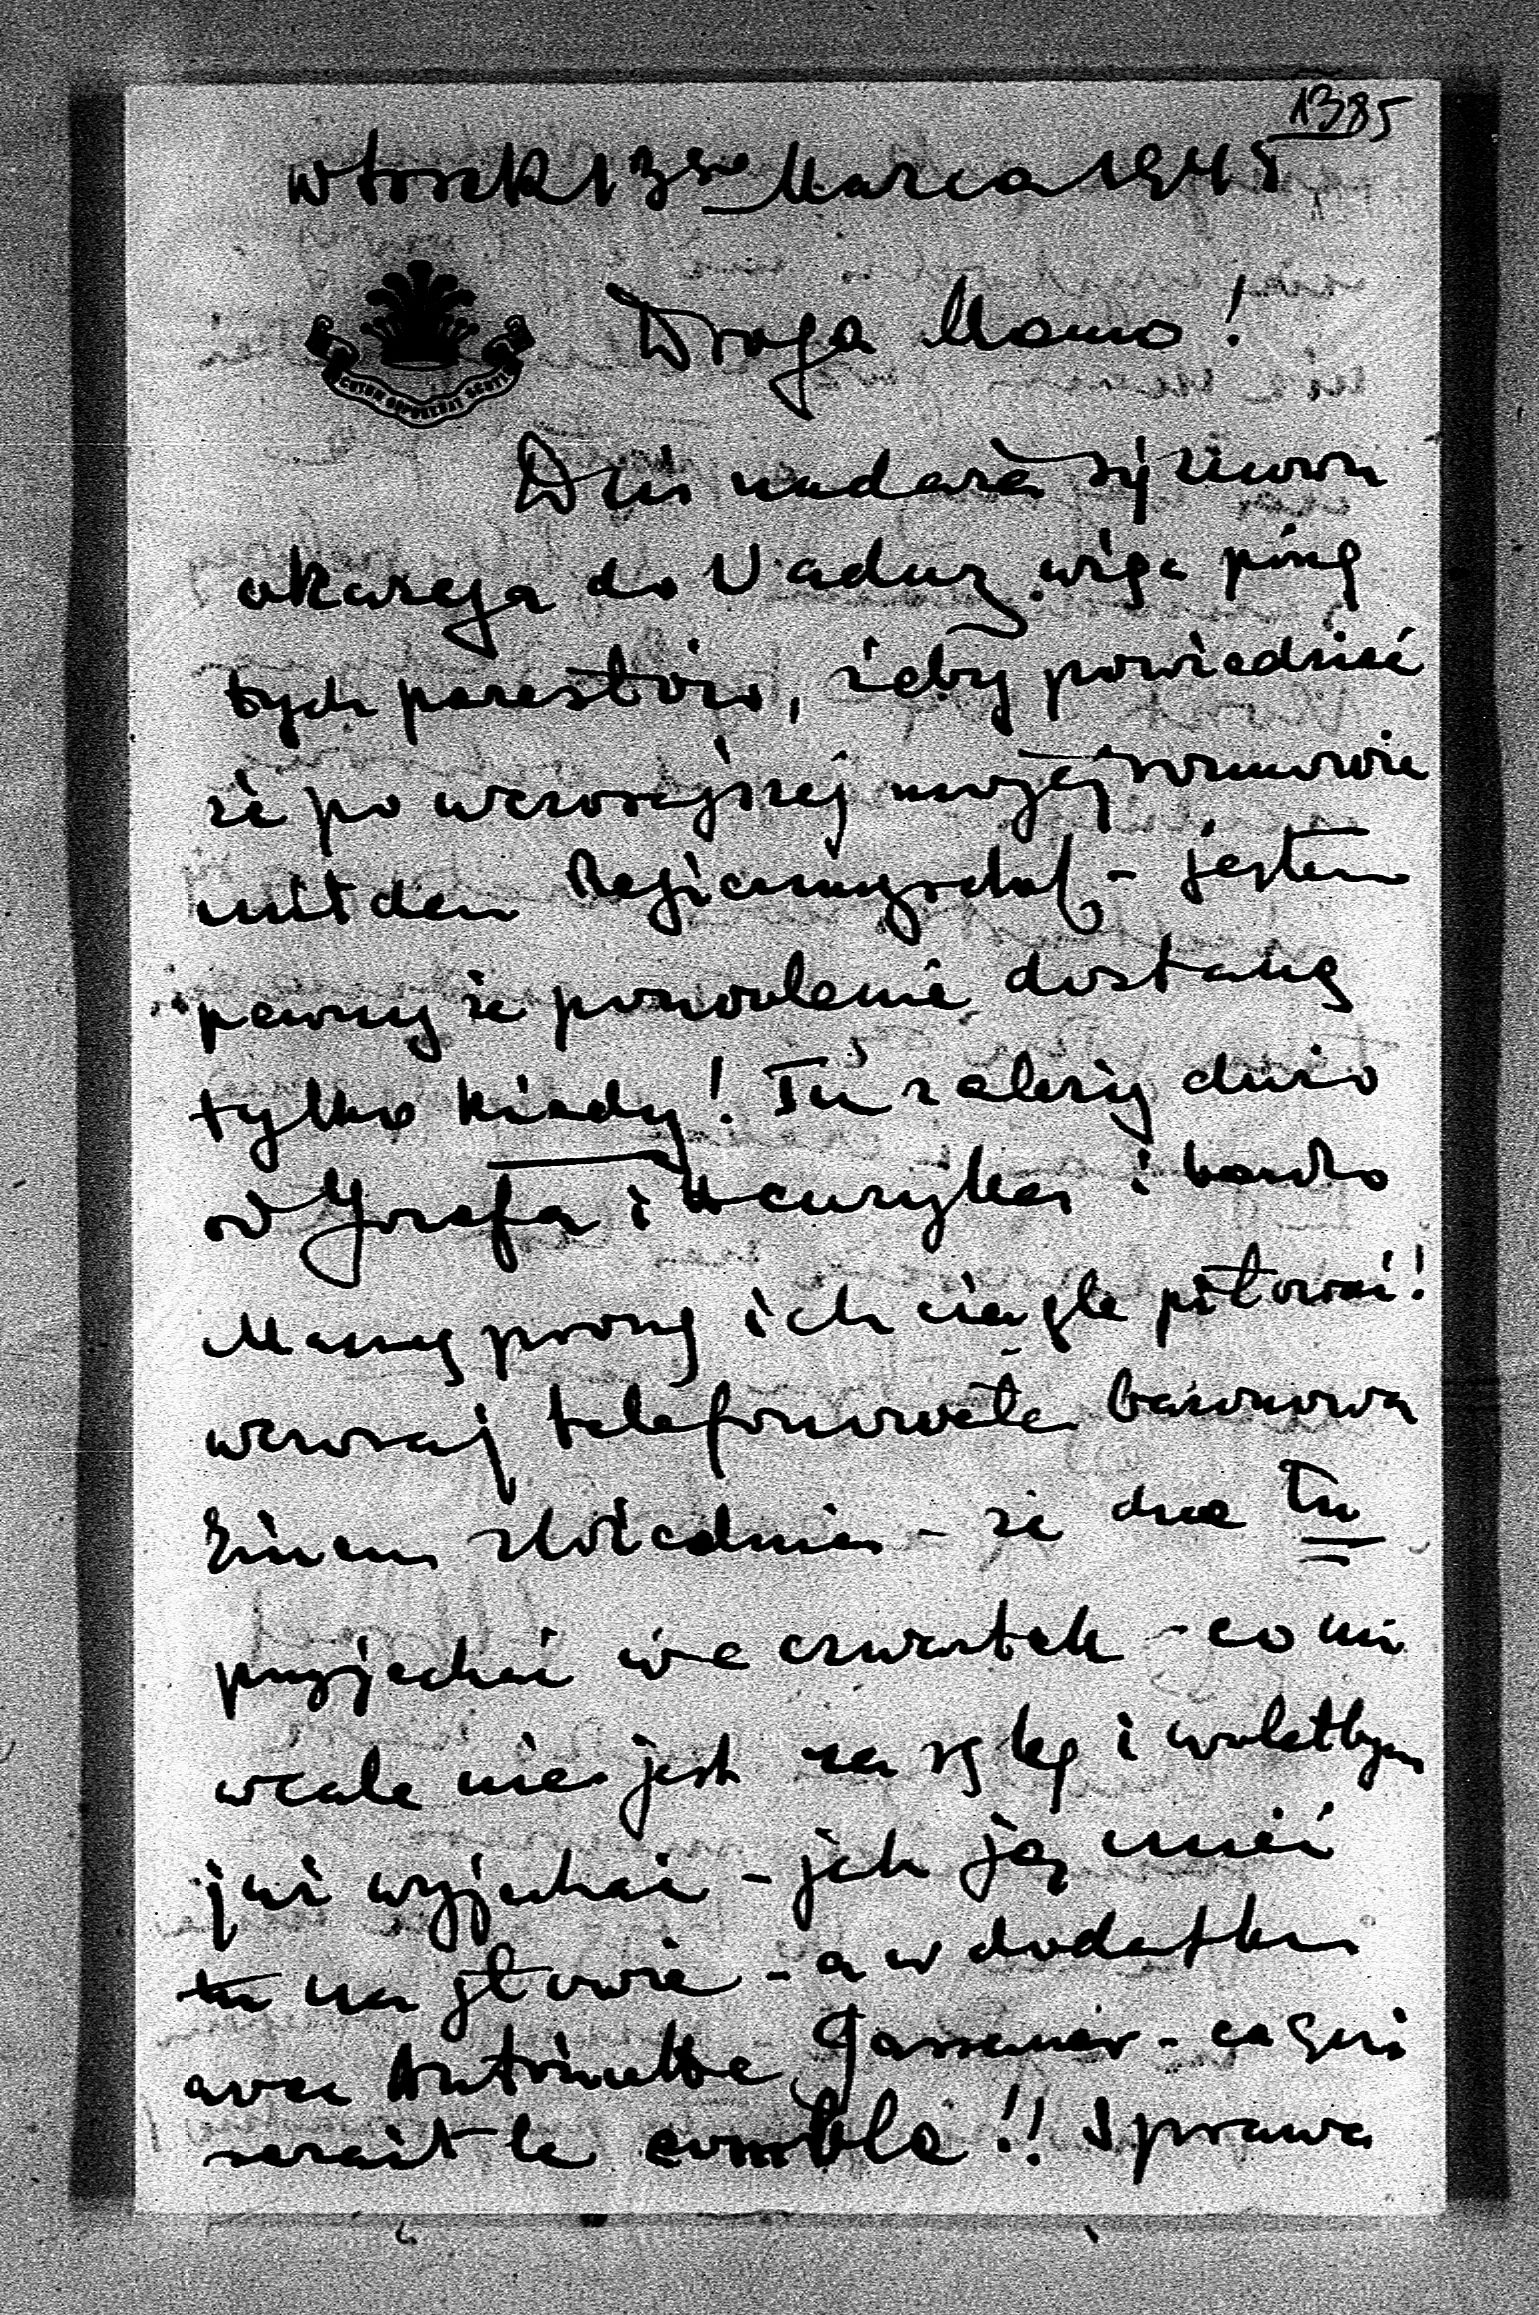 1385
wtorek 13go Marca 1945
Drogo Mamo!
CUTUR DEPUREHAT AGUTI
Dziś nadaża się znowu
okazyja do Vaduz więc piszę
tych parę słów, żeby powiedzieć
że po wczorajszej mojej rozmowie
mit dem Regierungschef - jestem
pewny że pozwolenie dostanę
tylko kiedy! Tu zależy dużo
od Jozefa i Henryka i bardzo
Mamę proszę ich ciągle pilować!
wczoraj telefonowała baronowa
z Wiednia - że chce Tu
przyjechać we czwartek - co mi
wcale nie jest na rękę i wolałbym
już wyjechać - jak ją mieć
tu na głowie - a w dodatku
avec Antoinette - ça
serait le comble!! Sprawa